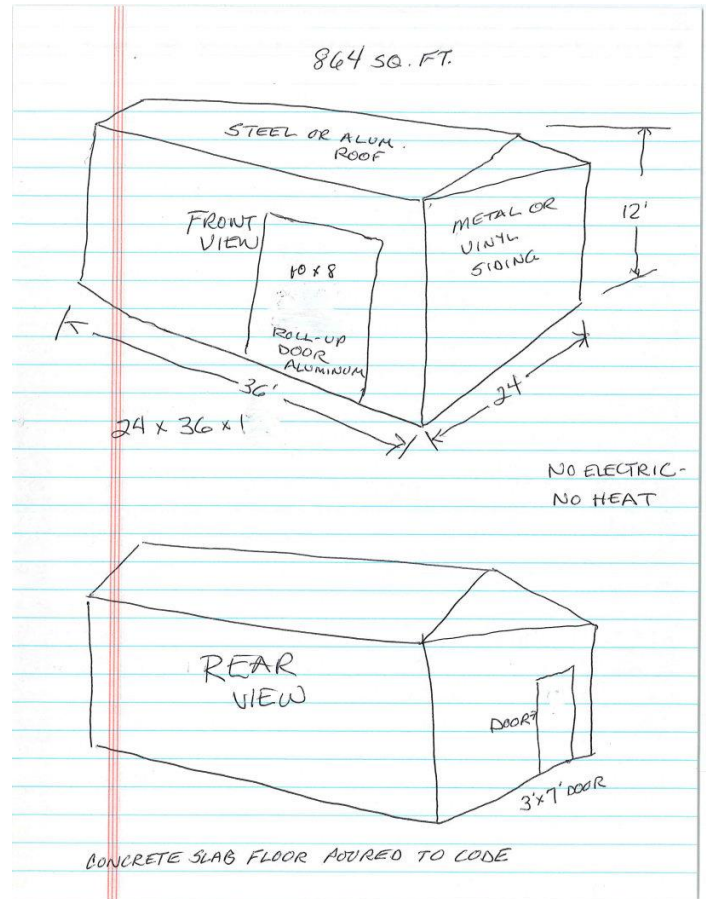 864 SQ. FT.
STEEL OR ALUM.
ROOF
FRONT
VIEW
METAL OR
VINYL
SIDING
12'
10 x 8
ROLL-UP
DOOR
ALUMINUM
36'
24
24 x 36 x 1
NO ELECTRIC-
NO HEAT
REAR
VIEW
DOOR
3'x7' DOOR
CONCRETE SLAB FLOOR POURED TO CODE